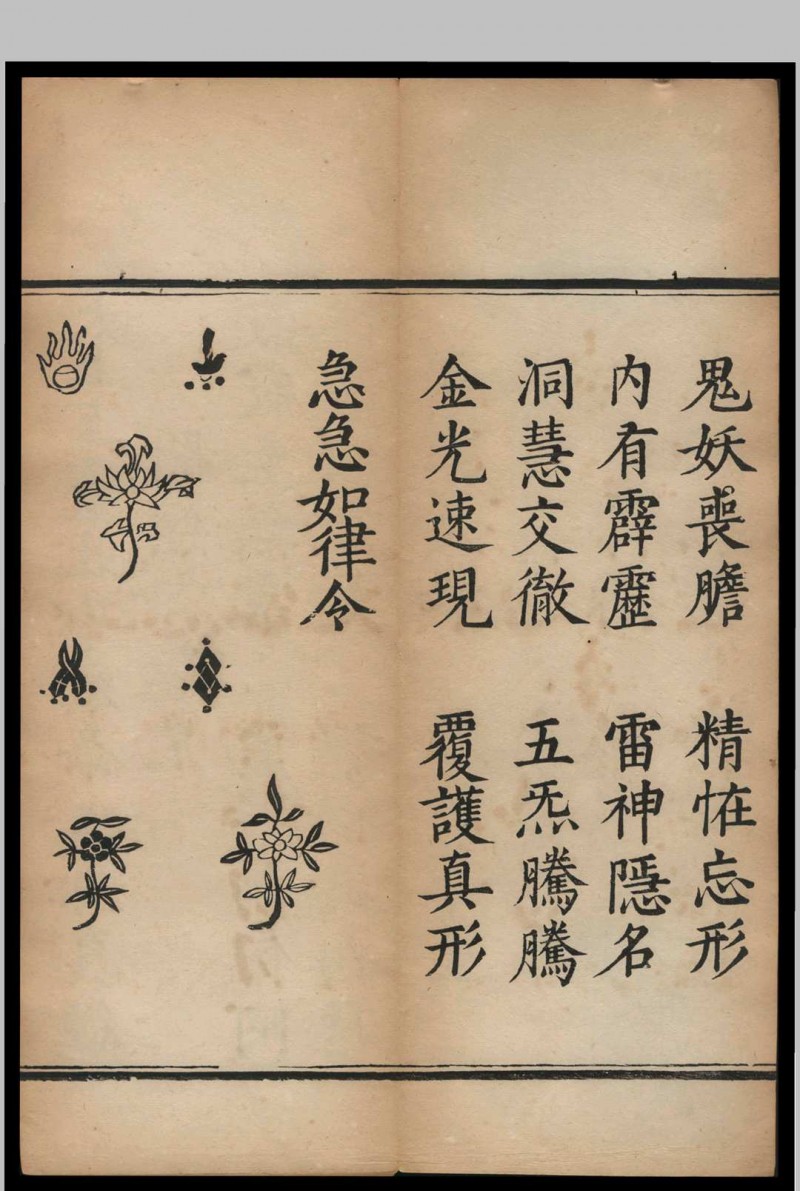 鬼妖喪膽　精恠忘形
内有霹靂　雷神隱名
洞慧交徹　五炁騰騰
金光速現　覆護真形
急急如律令